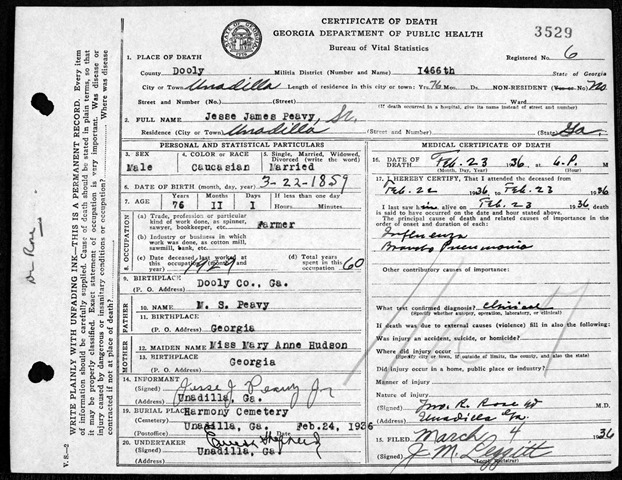 CERTIFICATE OF DEATH
GEORGIA DEPARTMENT OF PUBLIC HEALTH
Bureau of Vital Statistics
3529
Registered No. 6
1. PLACE OF DEATH
County Dooly Militia District (Number and Name) 1466th State of Georgia
City or Town Unadilla Length of residence in this city or town: Yr. 76 Mos. Ds. NON-RESIDENT (Yes or No) No
Street and Number (No.) Street
(If death occurred in a hospital, give its name instead of street and number)
2. FULL NAME Jesse James Peavy, Sr.
Residence (City or Town) Unadilla (Street and Number) (State) Ga.
PERSONAL AND STATISTICAL PARTICULARS
3. SEX Male
4. COLOR or RACE Caucasian
5. Single, Married, Widowed, Divorced (write the word) Married
6. DATE OF BIRTH (month, day, year) 3-22-1859
7. AGE Years 76 Months 11 Days 1
8. OCCUPATION
(a) Trade, profession or particular kind of work done, as spinner, sawyer, bookkeeper, etc. Farmer
(b) Industry or business in which work was done, as cotton mill, sawmill, bank, etc.
(c) Date deceased last worked at this occupation (month and year) 1929
(d) Total years spent in this occupation 60
9. BIRTHPLACE Dooly Co., Ga.
(P. O. Address)
FATHER
10. NAME M. S. Peavy
11. BIRTHPLACE
(P. O. Address) Georgia
MOTHER
12. MAIDEN NAME Miss Mary Anne Hudson
13. BIRTHPLACE
(P. O. Address) Georgia
14. INFORMANT
(Signed) Jesse J Peavy Jr
(Address) Unadilla, Ga.
19. BURIAL PLACE Harmony Cemetery
Postoffice Unadilla, Ga. Date Feb. 24, 1936
20. UNDERTAKER
(Signed) Shepherd
(Address) Unadilla, Ga.
MEDICAL CERTIFICATE OF DEATH
16. DATE OF DEATH Feb. 23 1936, at 6 P. M
17. I HEREBY CERTIFY, That I attended the deceased from
Feb. 22 1936 to Feb. 23 1936
I last saw him alive on Feb. 23 1936 death
is said to have occurred on the date and hour stated above.
The principal cause of death and related causes of importance in the order of onset and duration are:
Influenza
Broncho Pneumonia
Other contributory causes of importance:
What test confirmed diagnosis? Clinical
(Specify whether autopsy, operation, laboratory, or clinical)
If death was due to external causes (violence) fill in also the following:
Was injury an accident, suicide, or homicide?
Where did injury occur
(Specify city or town, if outside of limits, the county, and also the state)
Did injury occur in a home, public place or industry?
Manner of injury
Nature of injury
(Signed) Jno. R. Rose M.D.
(Address) Unadilla Ga.
15. FILED March 4 1936
J. M. Leggitt
(Local Registrar)
WRITE PLAINLY WITH UNFADING INK—THIS IS A PERMANENT RECORD. Every item of information should be carefully supplied. Cause of death should be stated in plain terms, so that it may be properly classified. Exact statement of occupation is very important. Was disease or injury caused by dangerous or insanitary conditions or occupation? Where was disease contracted if not at place of death?
Dr Rose
V. S.—2